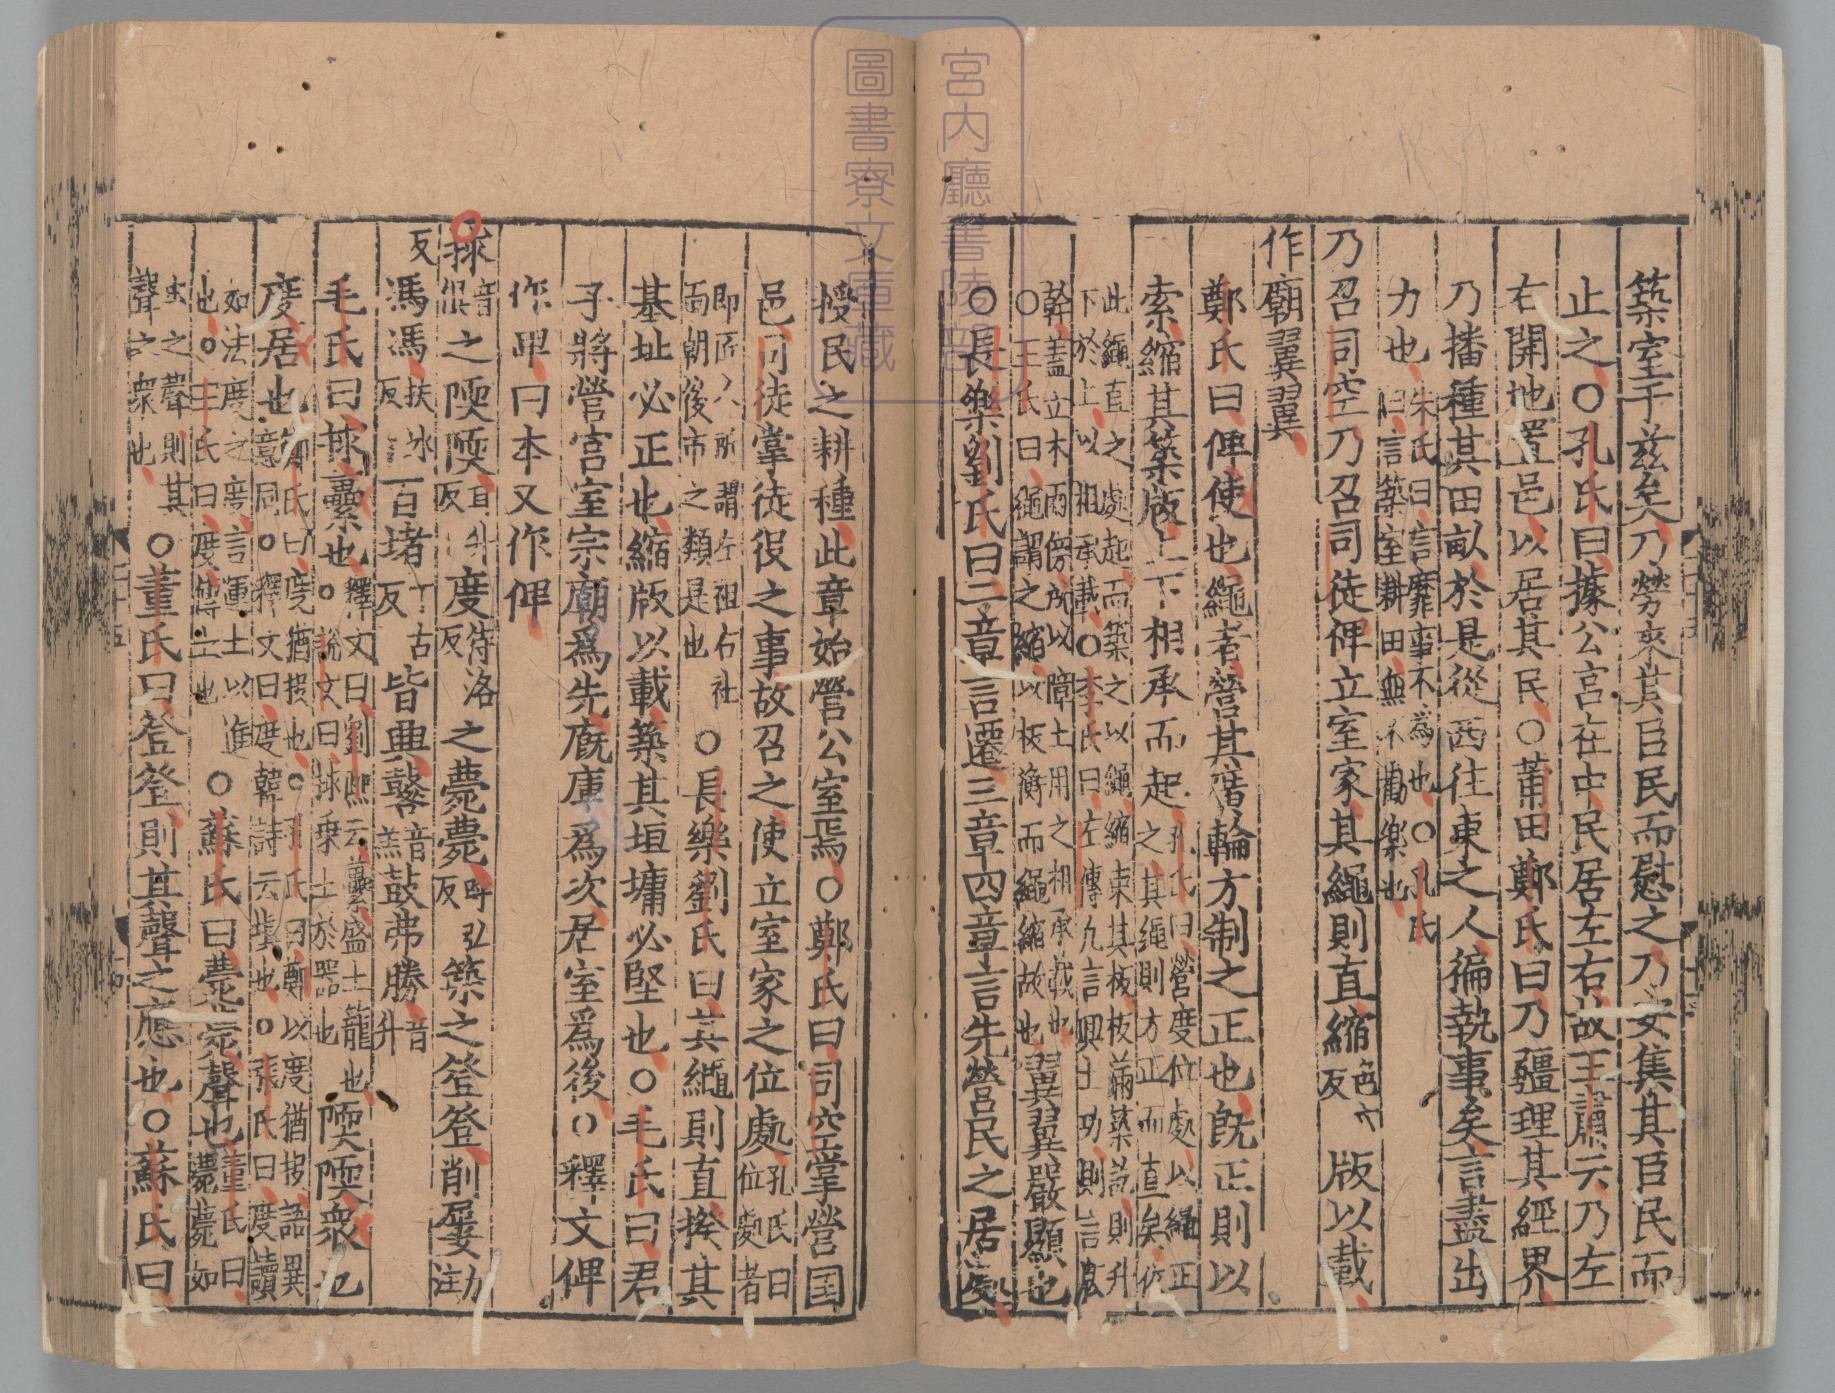 築室于茲矣乃勞來其臣民而慰之乃安集其臣民而
止之○孔氏曰據公宮在中民居左右故王肅云乃左
右開地置邑以居其民○莆田鄭氏曰乃疆理其經界
乃播種其田畝於是從西往東之人徧執事矣言盡出
力也朱氏曰言靡事不為也○孔氏曰言築室耕田無不勸樂也
乃召司空乃召司徒俾立室家其繩則直縮色六反版以載
作廟翼翼
鄭氏曰俾使也繩者營其廣輪方制之正也旣正則以
索縮其築版上下相承而起孔氏曰營度位處以繩正之其繩則方正而直矣依
此繩直之處起而築之以繩縮束其板板滿築訖則升下於上以相承載○李氏曰左傳九言興土功則言版
幹蓋立木兩傍所以障土用之相承載也○王氏曰繩謂之縮以板簿而繩縮故也翼翼嚴顯也
○長樂劉氏曰二章言遷三章四章言先營民之居處
授民之耕種此章始營公室焉○鄭氏曰司空掌營国
邑司徒掌徒役之事故召之使立室家之位處孔氏曰位處者
即匠人所謂左祖右社面朝後市之類是也○長樂劉氏曰其繩則直揆其
基址必正也縮版以載築其垣墉必堅也○毛氏曰君
子將營宮室宗廟爲先廐庫爲次居室爲後○釋文俾
作卑曰本又作俾
捄音俱之陾陾耳升反度待洛反之薨薨呼弘反築之登登削屢力注反
馮馮扶冰反百堵丁古反皆興鼛音羔鼓弗勝音升
毛氏曰捄虆也釋文曰劉熙云虆盛土籠也○說文曰捄乗土於器也陾陾衆也
度居也鄭氏曰度猶投也○孔氏曰鄭以度猶投語異意同○釋文曰度韓詩云塡也○張氏曰度讀
如法度之度言運土以進也○王氏曰度傳土也○蘇氏曰薨薨聲也董氏曰薨薨如
虫之聲則其聲之衆也○董氏曰登登則其聲之應也○蘇氏曰
宮内廳書陵部
圖書寮文庫藏